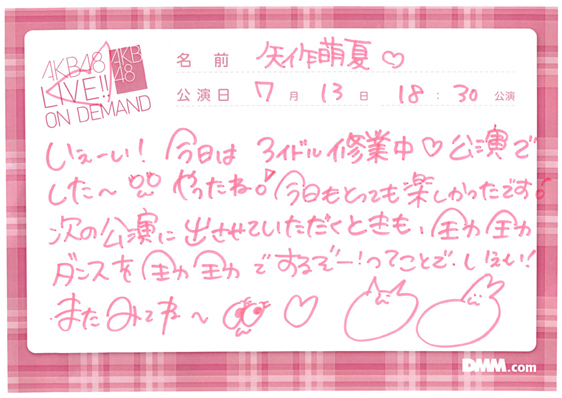 AKB48
LIVE!!
ON DEMAND
AKB
48
名前 矢作萌夏♡
公演日 7月13日 18:30公演
いぇーい！今日はアイドル修業中♡公演で
した〜 やったね♪今日もとっても楽しかったです♪
次の公演に出させていただくときも、全力全力
ダンスを全力全力でするぞー！ってことで、いぇい！
またみてね〜 ♡
DMM.com